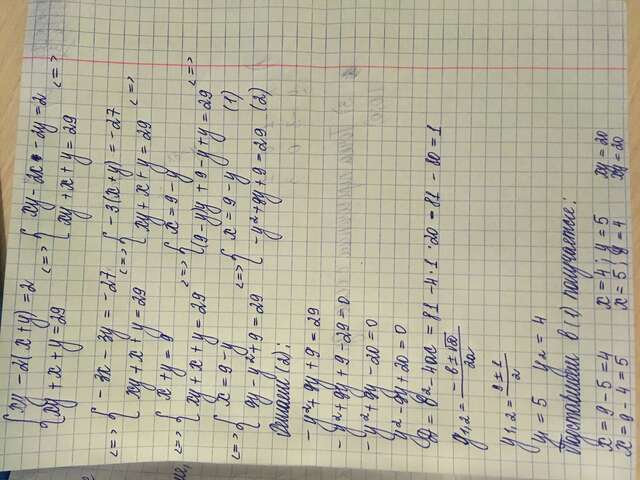 { xy - 2(x+y) = 2 { xy - 2x - 2y = 2
{ xy + x + y = 29 <=> { xy + x + y = 29 <=>
<=> { -3x - 3y = -27 <=> { -3(x+y) = -27 <=>
{ xy + x + y = 29 { xy + x + y = 29
<=> { x + y = 9 <=> { x = 9 - y <=>
{ xy + x + y = 29 { (9-y)y + 9 - y + y = 29
<=> { x = 9 - y <=> { x = 9 - y (1)
{ 9y - y² + 9 = 29 { -y² + 9y + 9 = 29 (2)
Решаем (2):
-y² + 9y + 9 = 29
-y² + 9y + 9 - 29 = 0
-y² + 9y - 20 = 0
y² - 9y + 20 = 0
D = b² - 4ac = 81 - 4·1·20 = 81 - 80 = 1
y1,2 = (-b ± √D)/2a
y1,2 = (9 ± 1)/2
y1 = 5 y2 = 4
Подставляем в (1) получается:
x = 9 - 5 = 4 x = 4; y = 5 xy = 20
x = 9 - 4 = 5 x = 5; y = 4 xy = 20